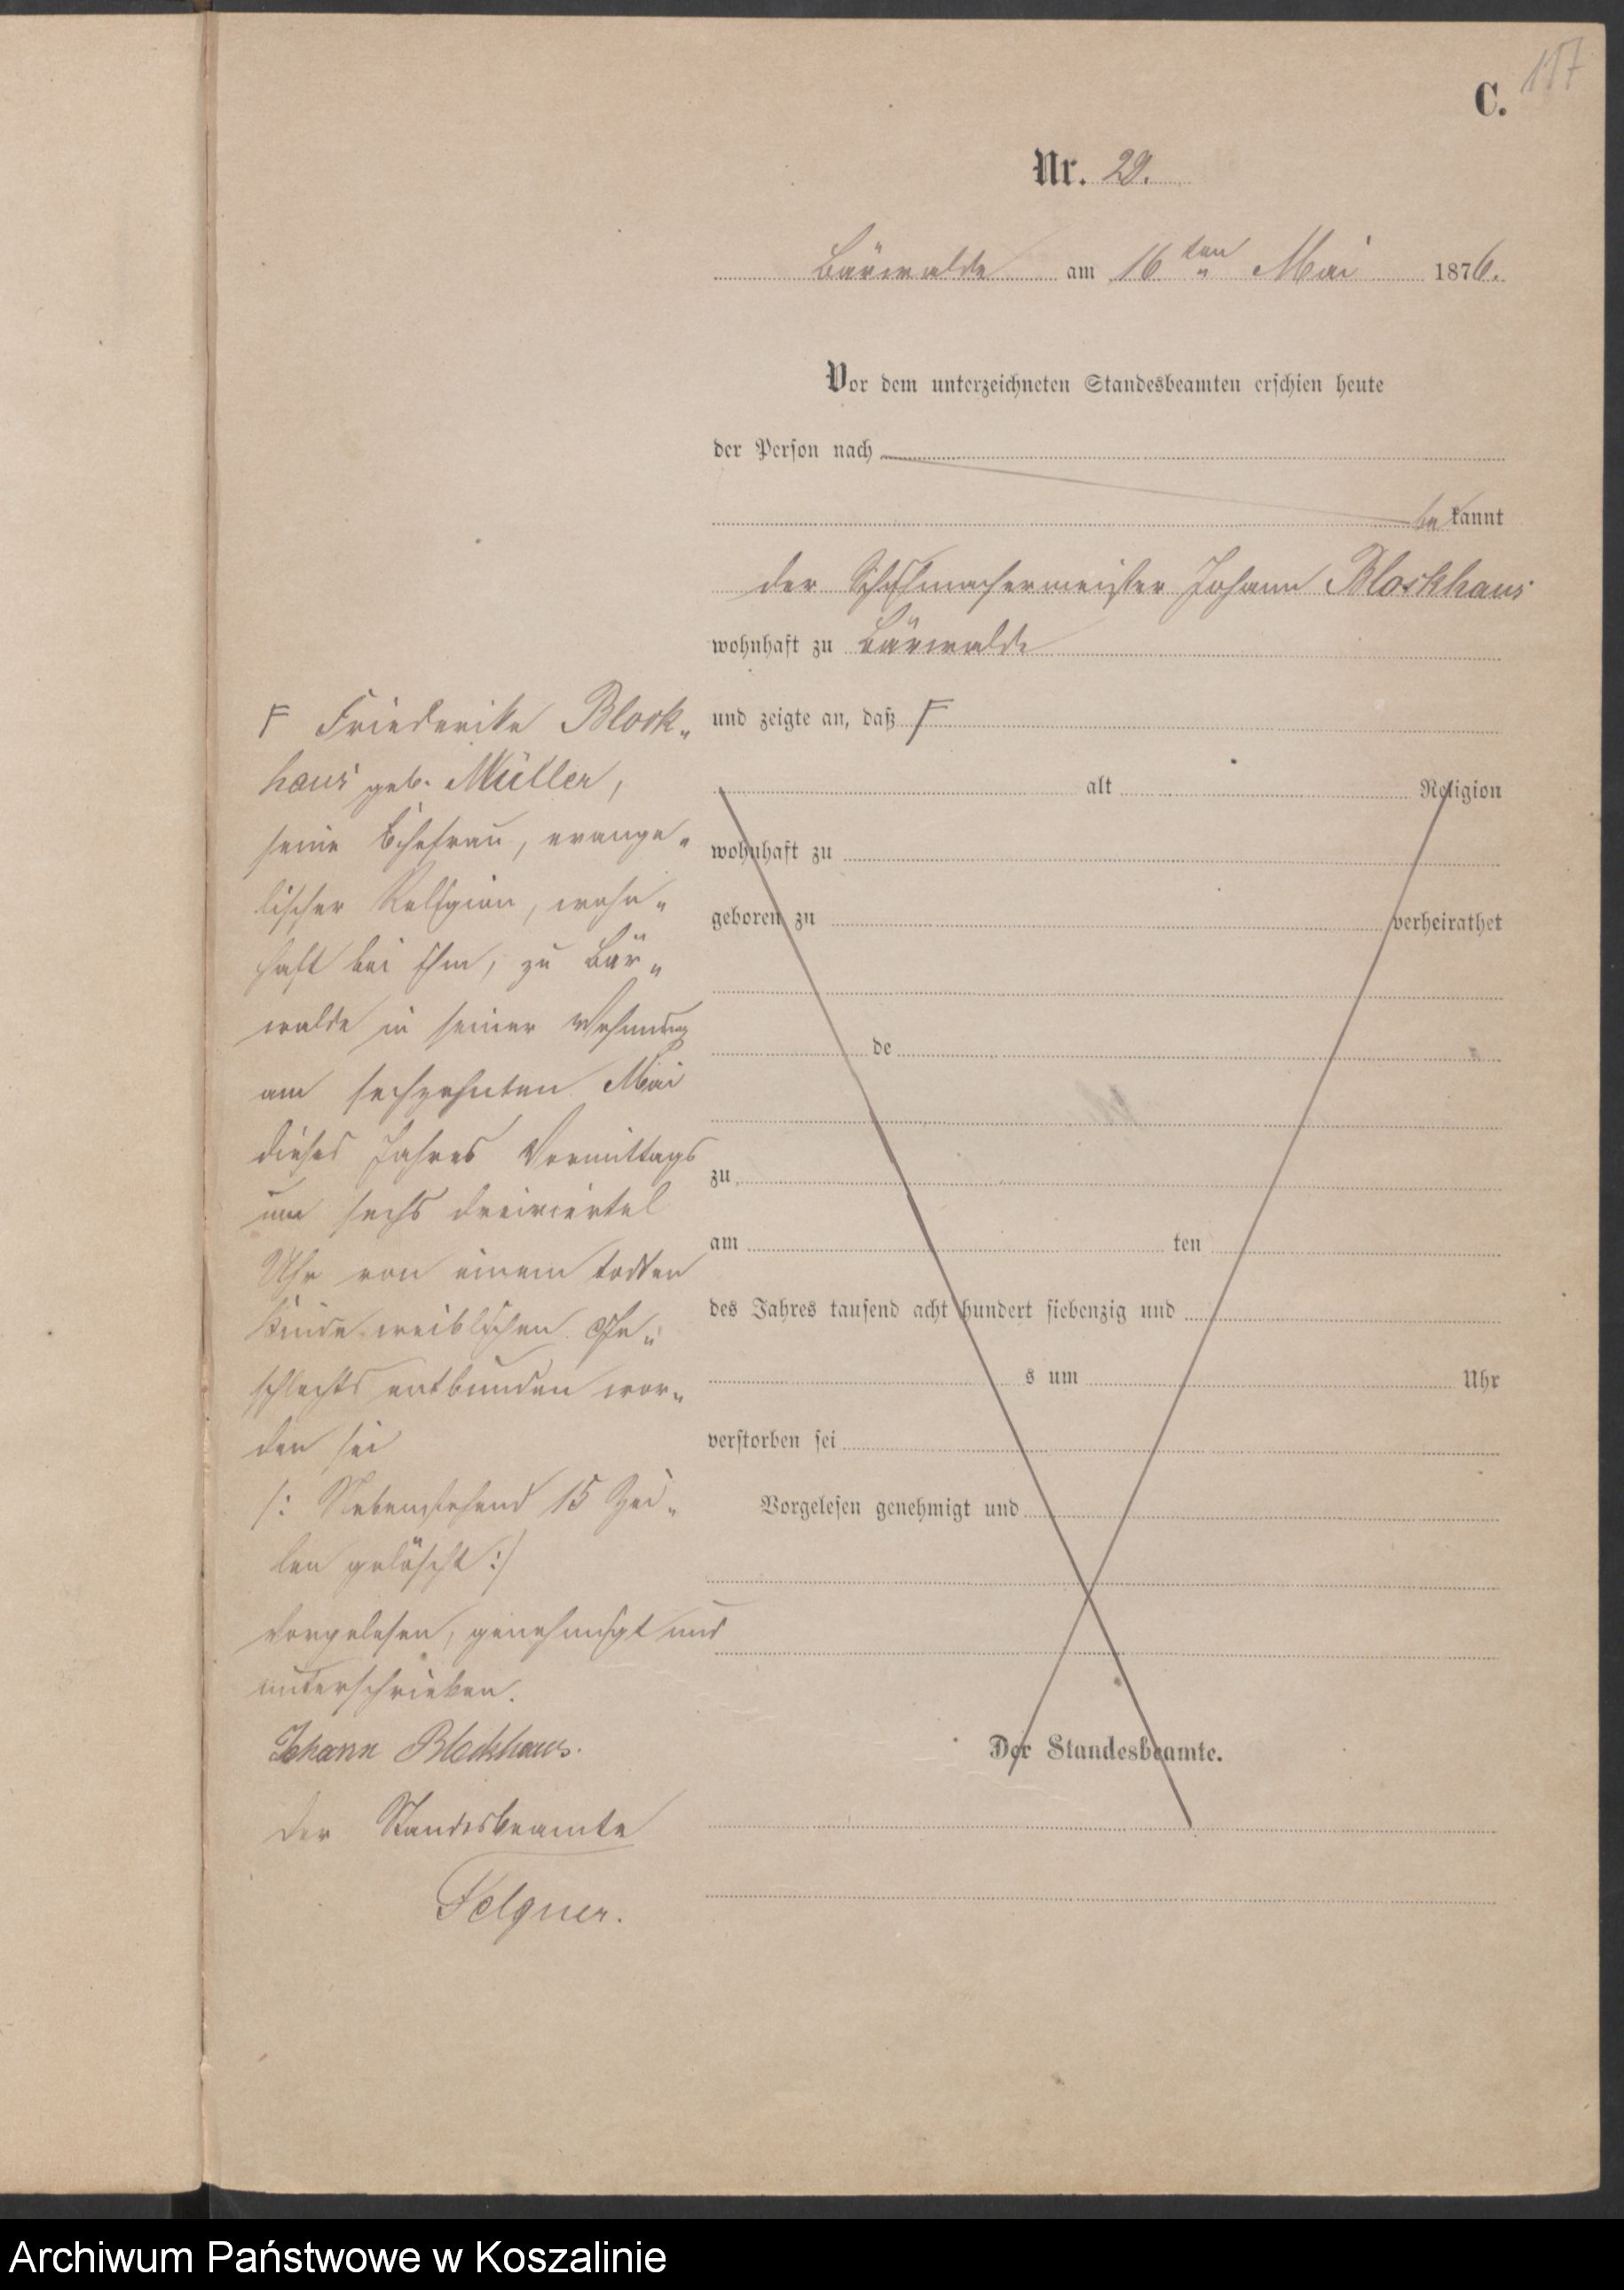 117
C.
Nr. 20.
Bärwalde am 16ten Mai 1876.
Vor dem unterzeichneten Standesbeamten erschien heute
der Person nach
bekannt
der Schuhmachermeister Johann Blockhaus
wohnhaft zu Bärwalde
und zeigte an, daß F
alt Religion
wohnhaft zu
geboren zu verheirathet
de
zu
am ten
des Jahres tausend acht hundert siebenzig und
s um Uhr
verstorben sei
Vorgelesen genehmigt und
Der Standesbeamte.
F Friederike Block„
haus geb. Müller,
seine Ehefrau, evange„
lischer Religion, wohn„
haft bei ihm, zu Bär„
walde in seiner Wohnung
am sechzehnten Mai
dieses Jahres Vormittags
um sechs dreiviertel
Uhr von einem todten
Kinde weiblichen Ge„
schlechts entbunden wor„
den sei
/: Nebenstehend 15 Zei„
len gelöscht :/
Vorgelesen, genehmigt und
unterschrieben.
Johann Blockhaus.
Der Standesbeamte
Felgner.
Archiwum Państwowe w Koszalinie